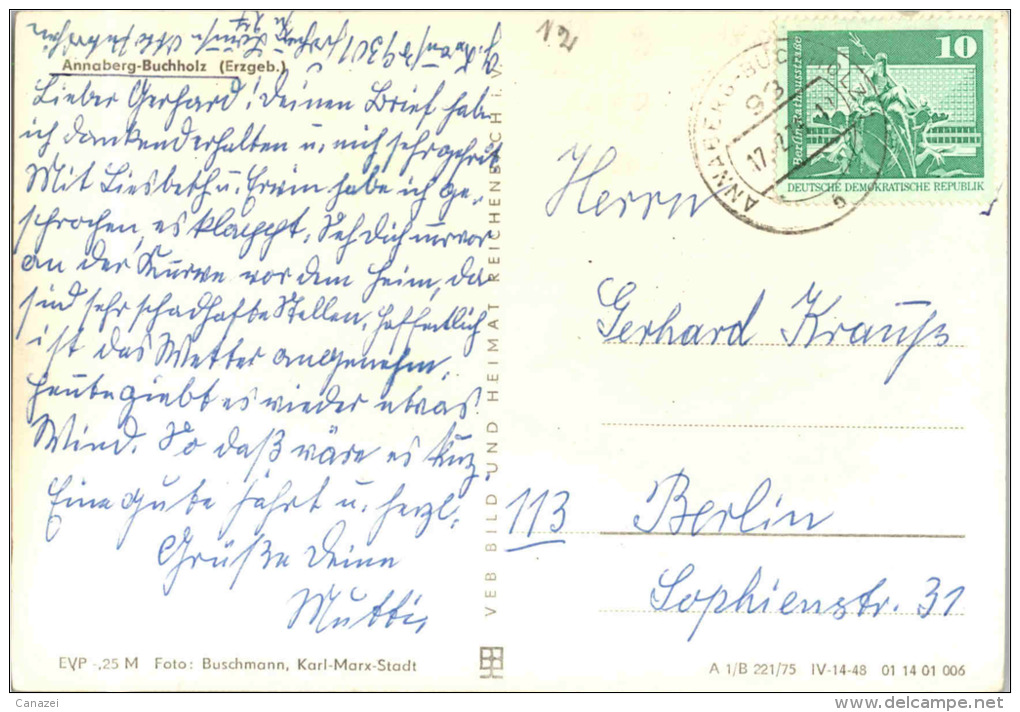 Annaberg-Buchholz (Erzgeb.)
Lieber Gerhard! Deinen Brief habe
ich dankend erhalten u. mich sehr gefreut
Mit Liesbeth u. Erwin habe ich ge-
sprochen, es klappt. Seh Dich nur vor
an der Kurve vor dem Heim, da
sind sehr schadhafte Stellen. Hoffentlich
ist das Wetter angenehm,
heute giebt es wieder etwas
Wind. So daß wäre es kurz
Eine gute Fahrt u. herzl.
Grüße Deine
Mutti
EVP -,25 M Foto: Buschmann, Karl-Marx-Stadt
VEB BILD UND HEIMAT REICHENBACH i. V.
ANNABERG-BUCHHOLZ
93
17
10
DEUTSCHE DEMOKRATISCHE REPUBLIK
Herrn
Gerhard Krauß
113 Berlin
Sophienstr. 31
A 1/B 221/75 IV-14-48 01 14 01 006
Canazei
www.delcampe.net